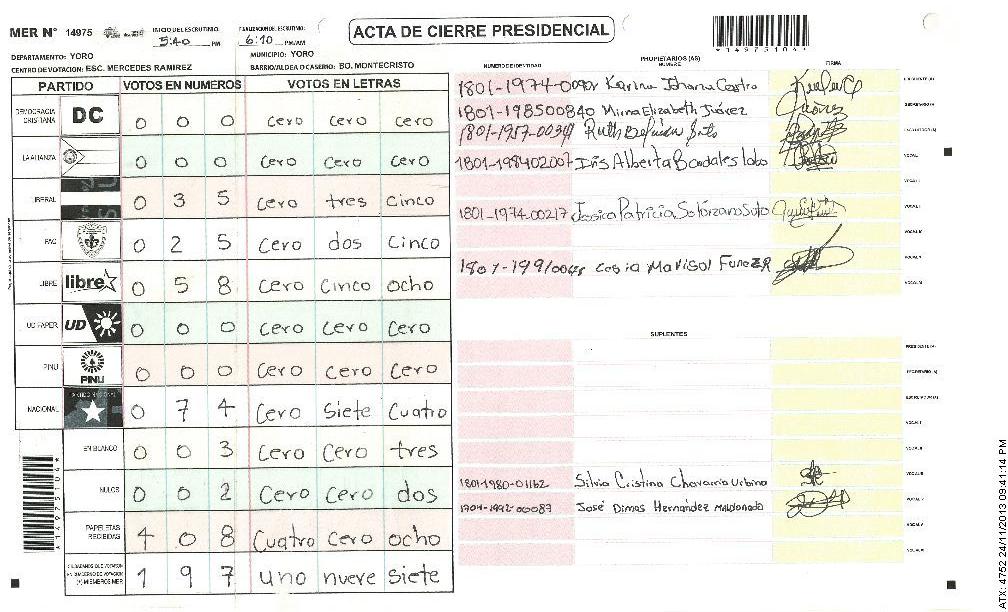 MER N° 14975
INICIO DEL ESCRUTINIO: 5:40 PM
FINALIZACION DEL ESCRUTINIO: 6:10 PM/AM
ACTA DE CIERRE PRESIDENCIAL
*14975104*
DEPARTAMENTO: YORO
MUNICIPIO: YORO
CENTRO DE VOTACION: ESC. MERCEDES RAMIREZ
BARRIO/ALDEA O CASERIO: BO. MONTECRISTO
PARTIDO VOTOS EN NUMEROS VOTOS EN LETRAS
DEMOCRACIA CRISTIANA DC 0 0 0 cero cero cero
LA ALIANZA 0 0 0 cero cero cero
LIBERAL 0 3 5 cero tres cinco
PAC 0 2 5 cero dos cinco
LIBRE libre 0 5 8 cero cinco ocho
UD FAPER UD 0 0 0 cero cero cero
PINU PINU 0 0 0 cero cero cero
NACIONAL 0 7 4 cero siete cuatro
EN BLANCO 0 0 3 cero cero tres
NULOS 0 0 2 cero cero dos
PAPELETAS RECIBIDAS 4 0 8 cuatro cero ocho
CIUDADANOS QUE VOTARON EN CUADERNO DE VOTACION (+) MIEMBROS MER 1 9 7 uno nueve siete
*14975104*
PROPIETARIOS (AS)
NUMERO DE IDENTIDAD NOMBRE FIRMA
Karina Johana Castro PRESIDENTE (A)
1801-198500840 Mirna Elizabeth Juárez SECRETARIO (A)
Ruth ESCRUTADOR (A)
1801-198402007 Iris Alberta Bandales lobo VOCAL I
VOCAL II
1801-1974-00217 Jessica Patricia Solórzano Soto
Marisol Funez R
SUPLENTES
PRESIDENTE (A)
SECRETARIO (A)
ESCRUTADOR (A)
VOCAL I
VOCAL II
1801-1980-01162 Silvia Cristina Chavarria Urbina VOCAL III
1904-1992-00087 José Dimas Hernández Maldonado
ATX: 4752 24/11/2013 09:41:14 PM